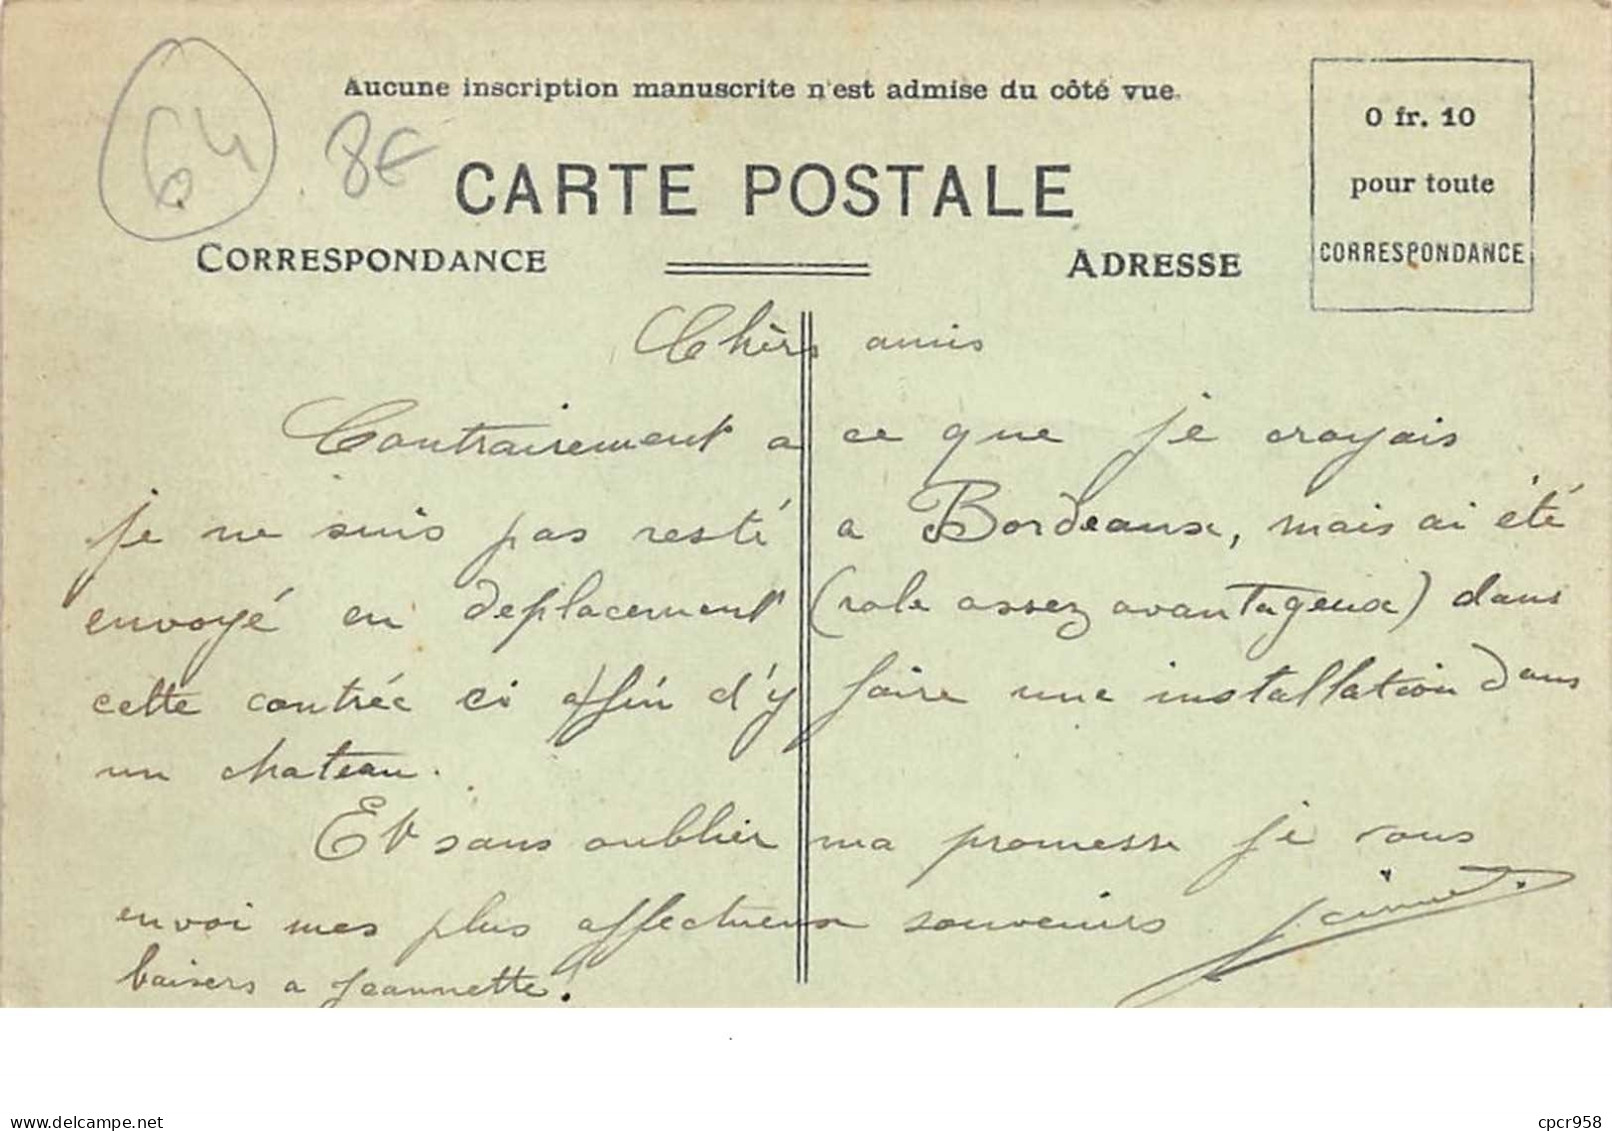 Aucune inscription manuscrite n'est admise du côté vue.
64
8€
CARTE POSTALE
CORRESPONDANCE
ADRESSE
0 fr. 10
pour toute
CORRESPONDANCE
Chèrs amis
Contrairement a ce que je croyais
je ne suis pas resté a Bordeaux, mais ai été
envoyé en deplacement (role assez avantageux) dans
cette contrée ci affin d'y faire une installation dans
un chateau.
Et sans oublier ma promesse je vous
envoi mes plus affectueux souvenirs
baisers a Jeannette!
www.delcampe.net
cpcr958